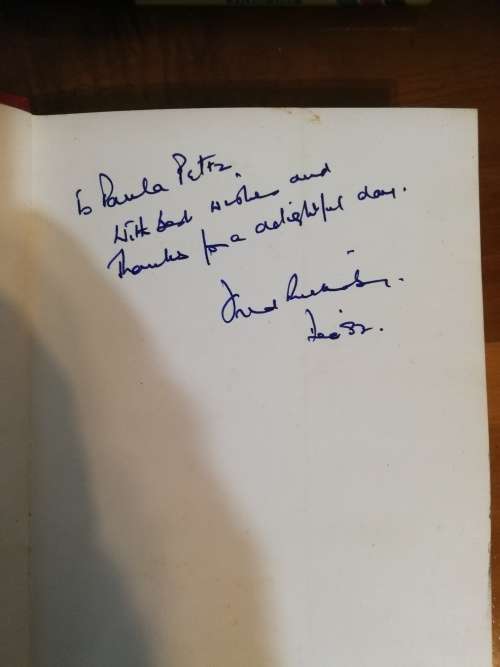 To Paula
With best wishes and
Thanks for a delightful day.
Fred
Dec '82.